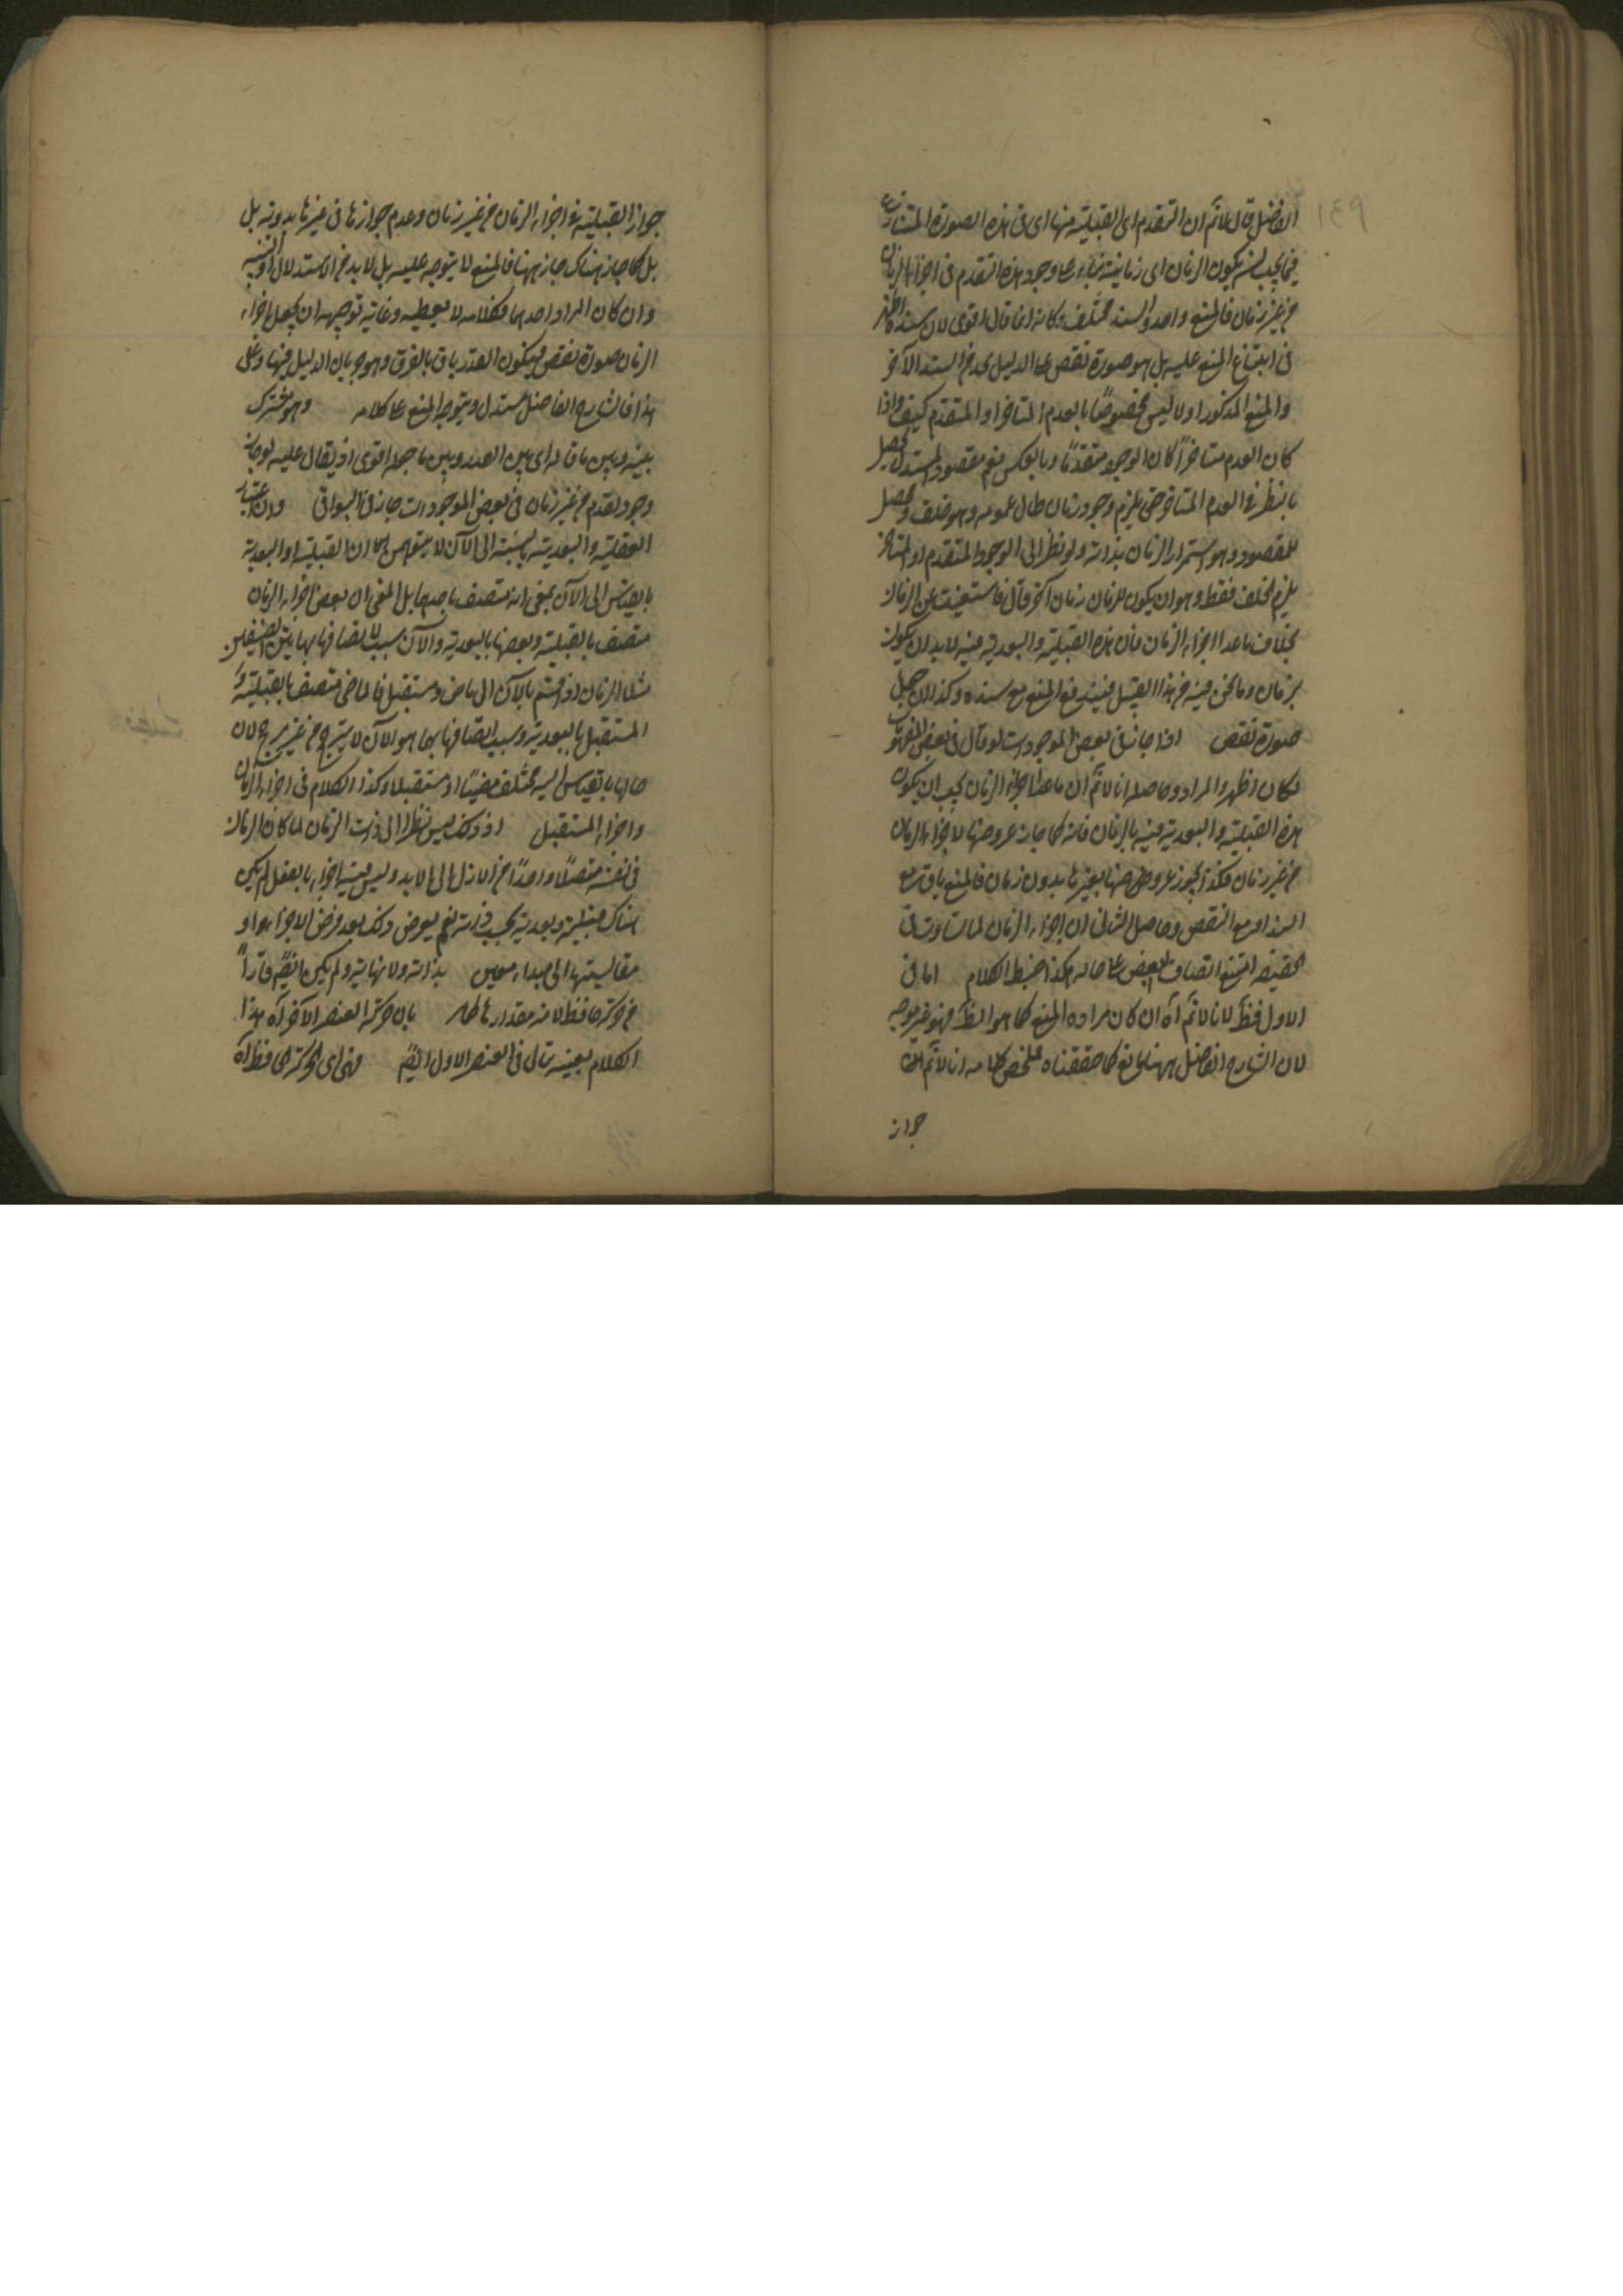 ١٤٩
الفاضل قال لا نم ان التقدم اى القبلية منها اى فى هذه الصورة
فيما يجب ان يكون الزمان اى زمانية بناء على وجود هذه التقدم فى اجزاء الزمان
من غير زمان فالمنع واحد والسند مختلف وكانه انما قال اقوى لان سنده اظهر
فى ابتناء المنع عليه بل هو صورة نقص على الدليل من السند الآخر
والمنع المذكور اولا ليس مخصوصًا بالعدم المتاخر او المتقدم كيف واذا
كان العدم متاخرًا كان الوجود متقدمًا وبالعكس نعم مقصود المستدل يحصل
بالنظر فى العدم المتاخر حتى يلزم وجود زمان حال عدمه وهو خلف ويحصل
المقصود وهو استمرار الزمان بذاته ولو نظر الى الوجود المتقدم او المتاخر
يلزم الخلف فقط وهو ان يكون للزمان زمان آخر قال فاستغنيت عن الزمان
بخلاف ما عدا اجزاء الزمان فان هذه القبلية والبعدية فيه لا بد ان يكون
بزمان وما نحن فيه من هذا القبيل فيندفع المنع مع سنده وكذا ان جعل
صورة نقص اذا جاز فى بعض الموجودات لو قال فى بعض
لكان اظهر والمراد وحاصله انا لا نم ان ما عدا اجزاء الزمان يجب ان يكون
هذه القبلية والبعدية فيه بالزمان فانه كما جاز عروضها لاجزاء الزمان
من غير زمان فكذا يجوز عروضها لغيرها بدون زمان فالمنع باق مع
السند او مع النقص وحاصل الثانى ان اجزاء الزمان لما تساوت فى
الحقيقة امتنع اتصاف البعض على حاله هكذا ضبط الكلام اما فى
الاول فظ لانا لا نم آه ان كان مراده المنع كما هو الظ فهو غير موجه
لان الشارح الفاضل ههنا مانع كما حققناه ملخص كلامه انا لا نم
جواز
جواز القبلية فى اجزاء الزمان من غير زمان وعدم جوازها فى غيرها بدونه بل
بل كما جاز هناك جاز ههنا فالمنع لا يتوجه عليه بل لا بد من الاستدلال او التنبيه
وان كان المراد احدهما فكلامه لا يعطيه وغاية توجيهه ان يجعل اجزاء
الزمان صورة نقص فيكون العذر باق بالفرق وهو جريان الدليل فيها وعلى
هذا فالشارح الفاضل مستدل ويتوجه المنع على كلامه وهو مشترك
بينه وبين ما قاله اى بين العذر وبين ما جعله اقوى اذ يقال عليه لو جاز
وجود تقدم من غير زمان فى بعض الموجودات جاز فى البواقى وان اعتبار
القبلية والبعدية بالنسبة الى الآن لا يتوهمن ان القبلية او البعدية
بالقياس الى الآن بمعنى انه متصف باحدهما بل المعنى ان بعض اجزاء الزمان
متصف بالقبلية وبعضها بالبعدية والآن سبب لاتصافها بهاتين الصفتين
مثلا الزمان اذا قسم بالآن الى ماض ومستقبل فالماضى متصف بالقبلية و
المستقبل بالبعدية وسبب اتصافها بهما هو الآن لا يترجح من غير مرجح لان
حالها بالقياس اليه مختلف مضيًا او مستقبلا وكذا الكلام فى اجزاء الزمان
واجزاء المستقبل اذ ذلك ليس نظرا الى ذات الزمان لما كان الزمان
فى نفسه متصلا واحدًا من الازل الى الابد وليس فيه اجزاء بالفعل لم يكن
هناك قبلية وبعدية بحسب ذاته نعم يعرض ذلك بعد فرض الاجزاء او
مقايستها الى مبداء معين بذاته ولا نهاية ولم يكن ايضً قارا
من حركة حافظ لانه مقدار ها بان حركة العنصر الآخر آه هذا
الكلام بعينه يتأتى فى العنصر الاول ايضً فهى اى الحركة الحافظة آه